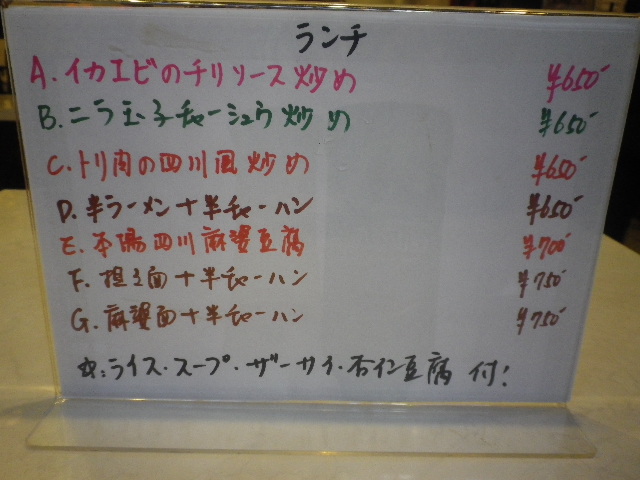 ランチ
A. イカエビのチリソース炒め ¥650-
B. ニラ玉子チャーシュウ炒め ¥650-
C. トリ肉の四川風炒め ¥650-
D. 半ラーメン+半チャーハン ¥650-
E. 本場四川麻婆豆腐 ¥700-
F. 担々面+半チャーハン ¥750-
G. 麻婆面+半チャーハン ¥750-
※:ライス・スープ・ザーサイ・杏仁豆腐 付!